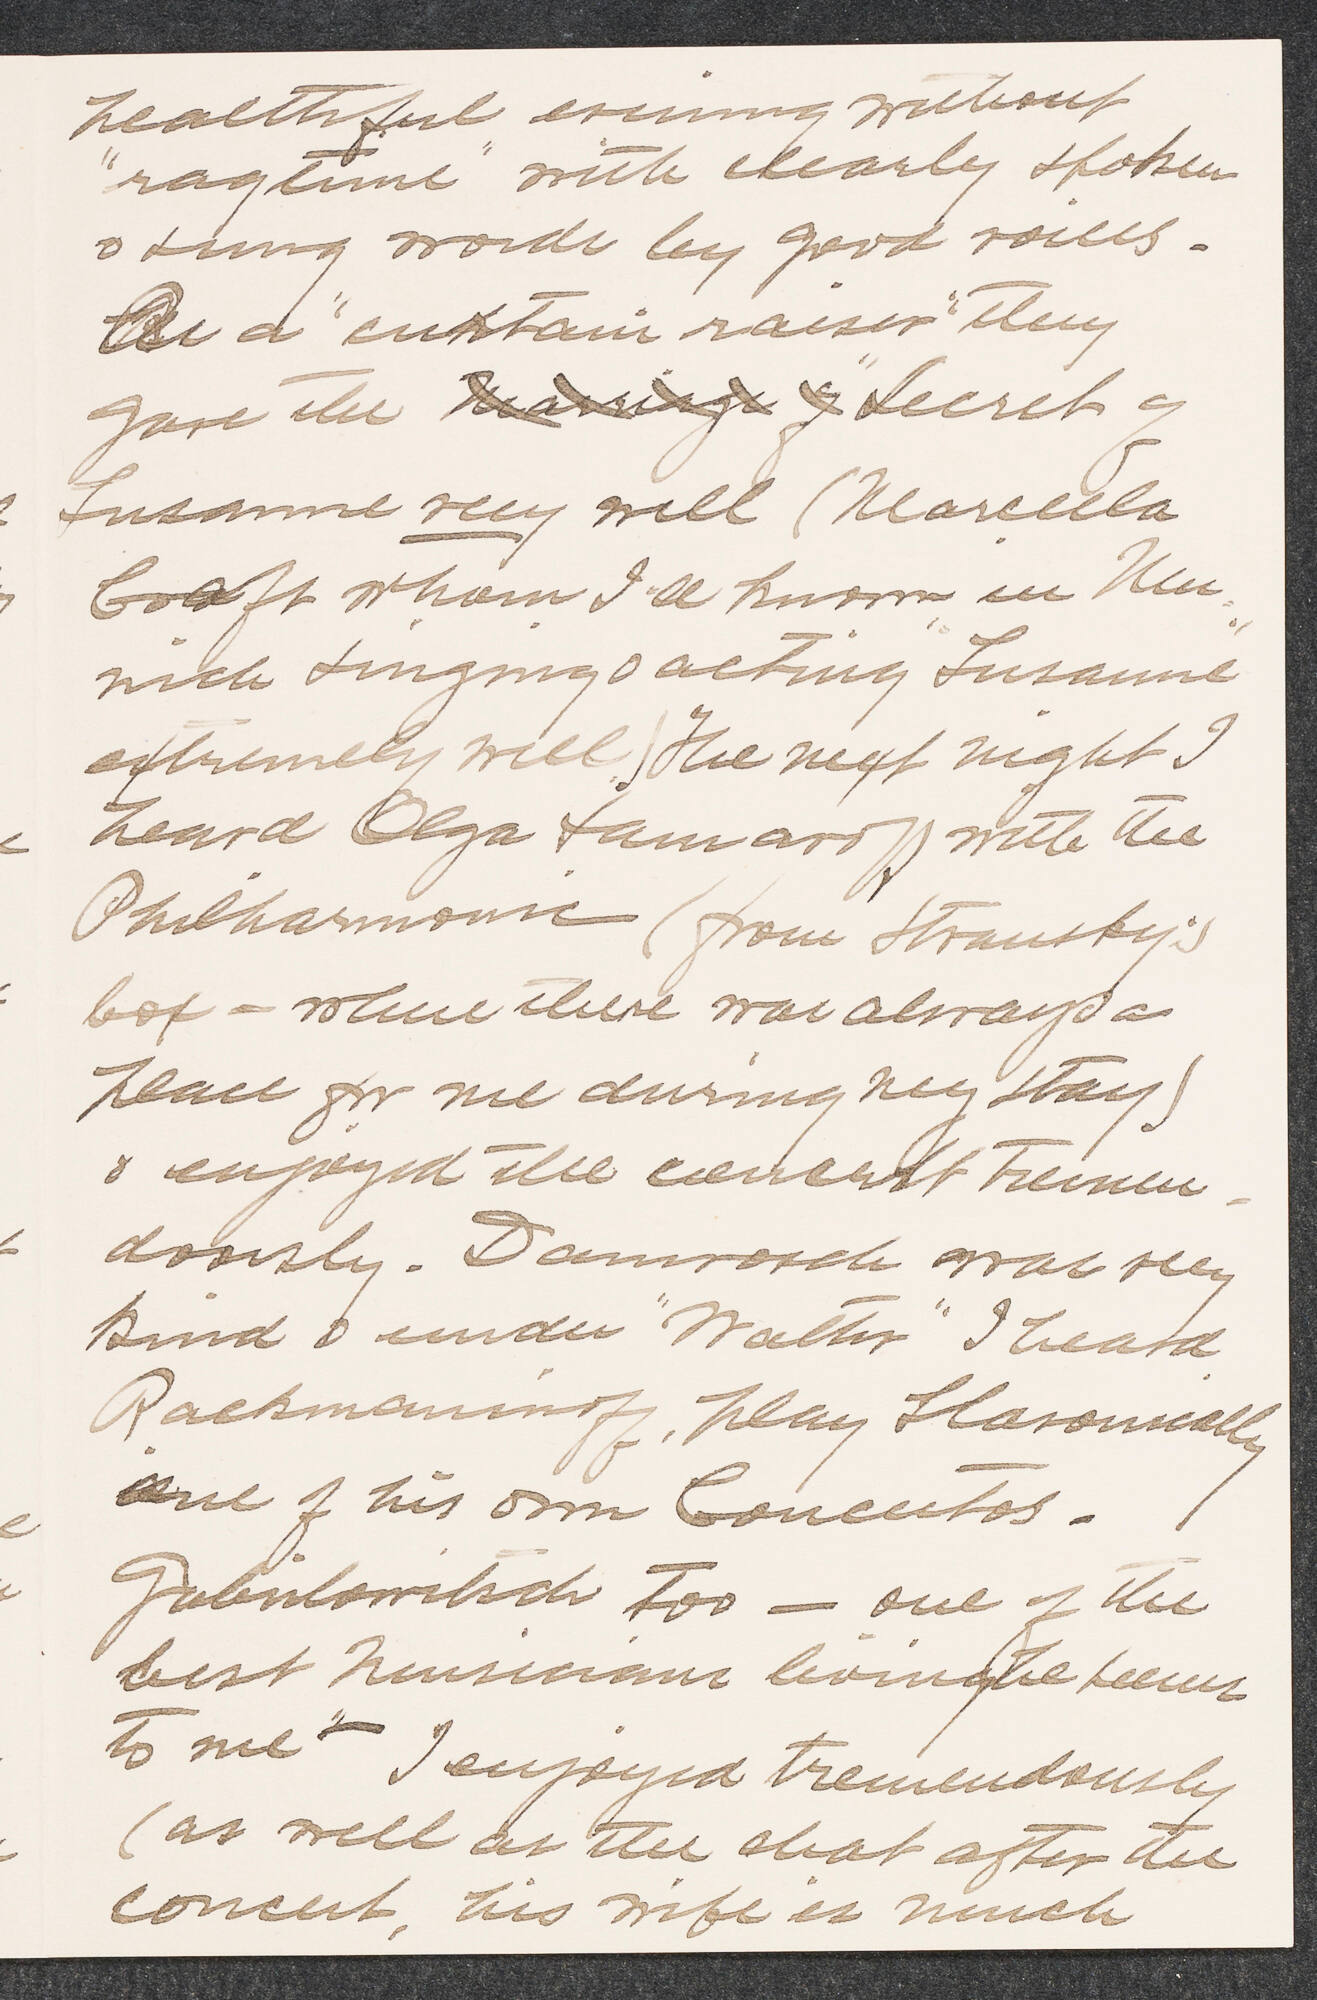 healthful evening without
"ragtime" with clearly spoken
& sung words by good voices -
As a "curtain raiser" they
gave the Marriage of "Secret of
Susanne very well (Marcella
Craft whom I'd known in Mu-
nich singing & acting "Susanne"
extremely well.) The next night I
heard Olga Samaroff with the
Philharmonic (from Stransky's
box - where there was always a
place for me during my stay)
& enjoyed the concert tremen-
dously. Damrosch was very
kind & under "Walter" I heard
Rackmaninoff, play Slavonically
one of his own Concertos -
Gabrilowitsch too — one of the
best musicians living (he seems
to me" — I enjoyed tremendously
(as well as the chat after the
concert, his wife is much